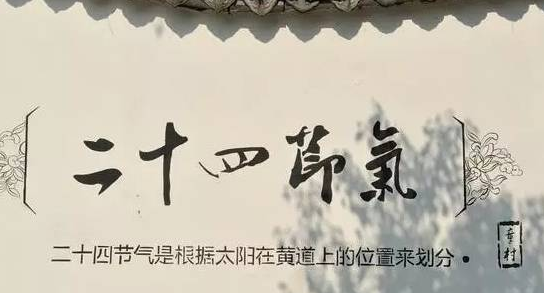 二十四節氣
二十四节气是根据太阳在黄道上的位置来划分•